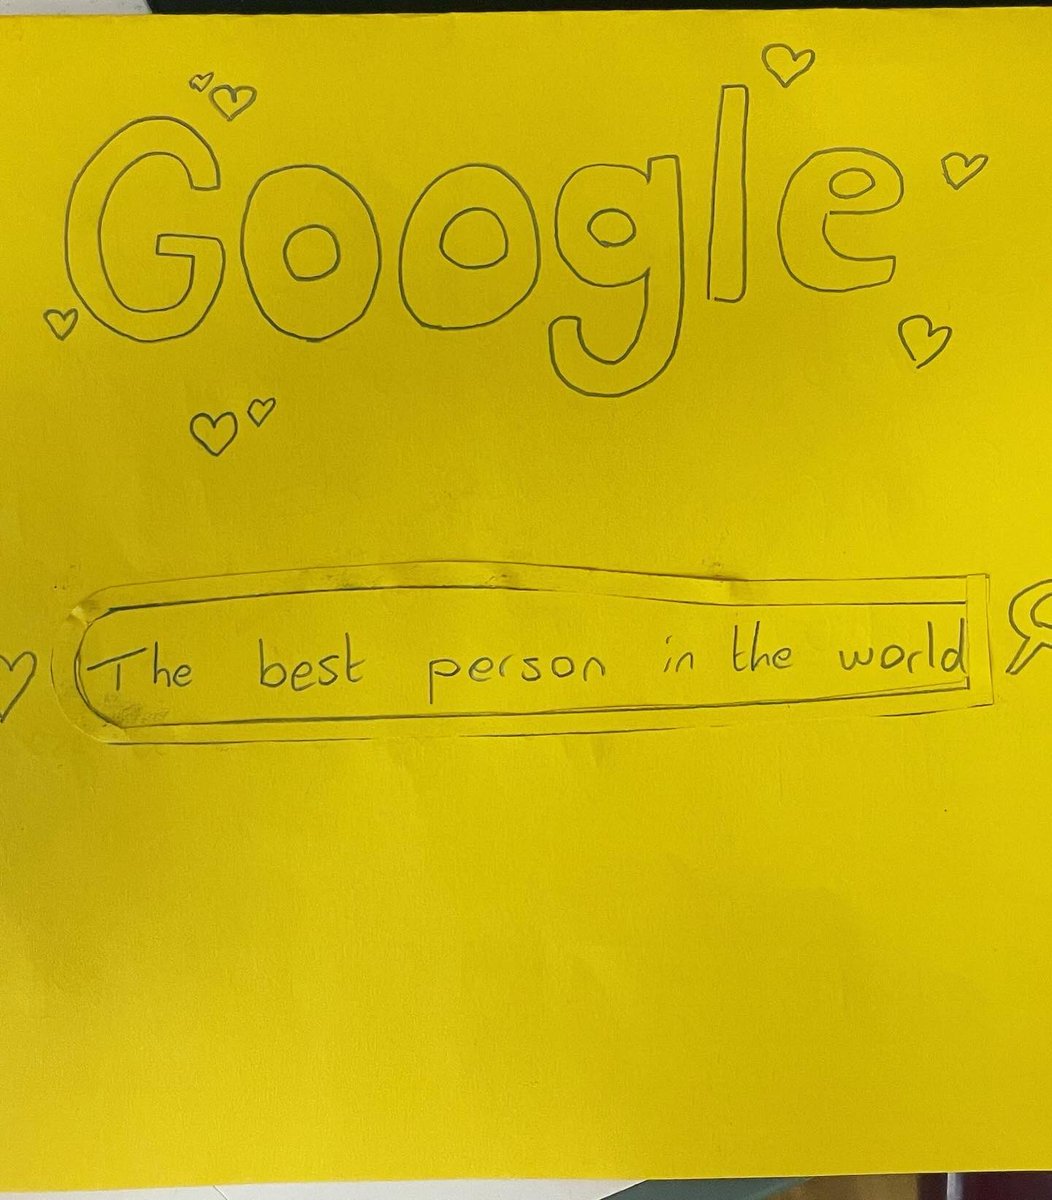 Google
The best person in the world